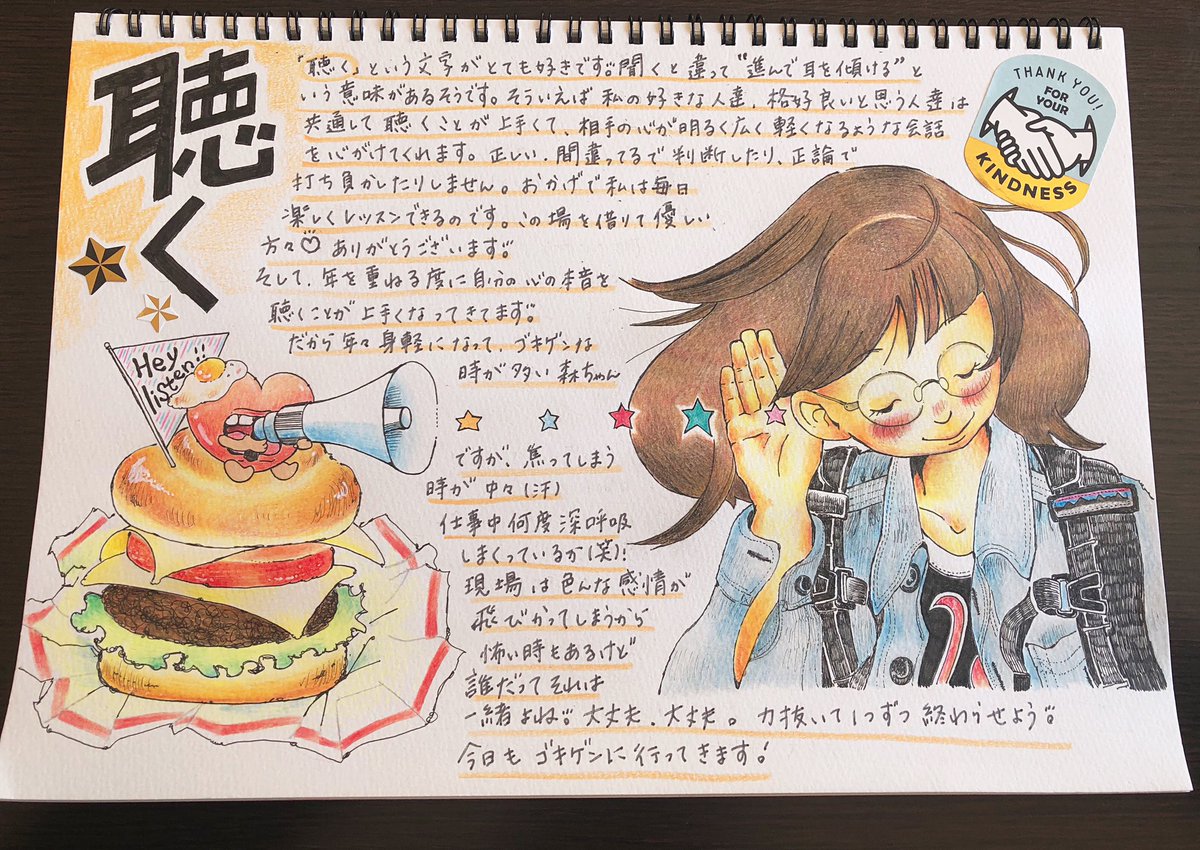 聴く
「聴く」という文字がとても好きです。聞くと違って"進んで耳を傾ける"と
いう意味があるそうです。そういえば私の好きな人達、格好良いと思う人達は
共通して聴くことが上手くて、相手の心が明るく広く軽くなるような会話
を心がけてくれます。正しい、間違ってるで判断したり、正論で
打ち負かしたりしません。おかげで私は毎日
楽しくレッスンできるのです。この場を借りて優しい
方々♡ありがとうございます。
そして、年を重ねる度に自分の心の本音を
聴くことが上手くなってきてます。
だから年々身軽になって、ゴキゲンな
時が多い森ちゃん
ですが、焦ってしまう
時が中々(汗)
仕事中何度深呼吸
しまくっているか(笑)!
現場は色んな感情が
飛びかってしまうから
怖い時もあるけど
誰だってそれは
一緒よね。大丈夫、大丈夫。力抜いて1つずつ終わらせよう。
今日もゴキゲンに行ってきます!
THANK YOU!
FOR
YOUR
KINDNESS
Hey
listen!!